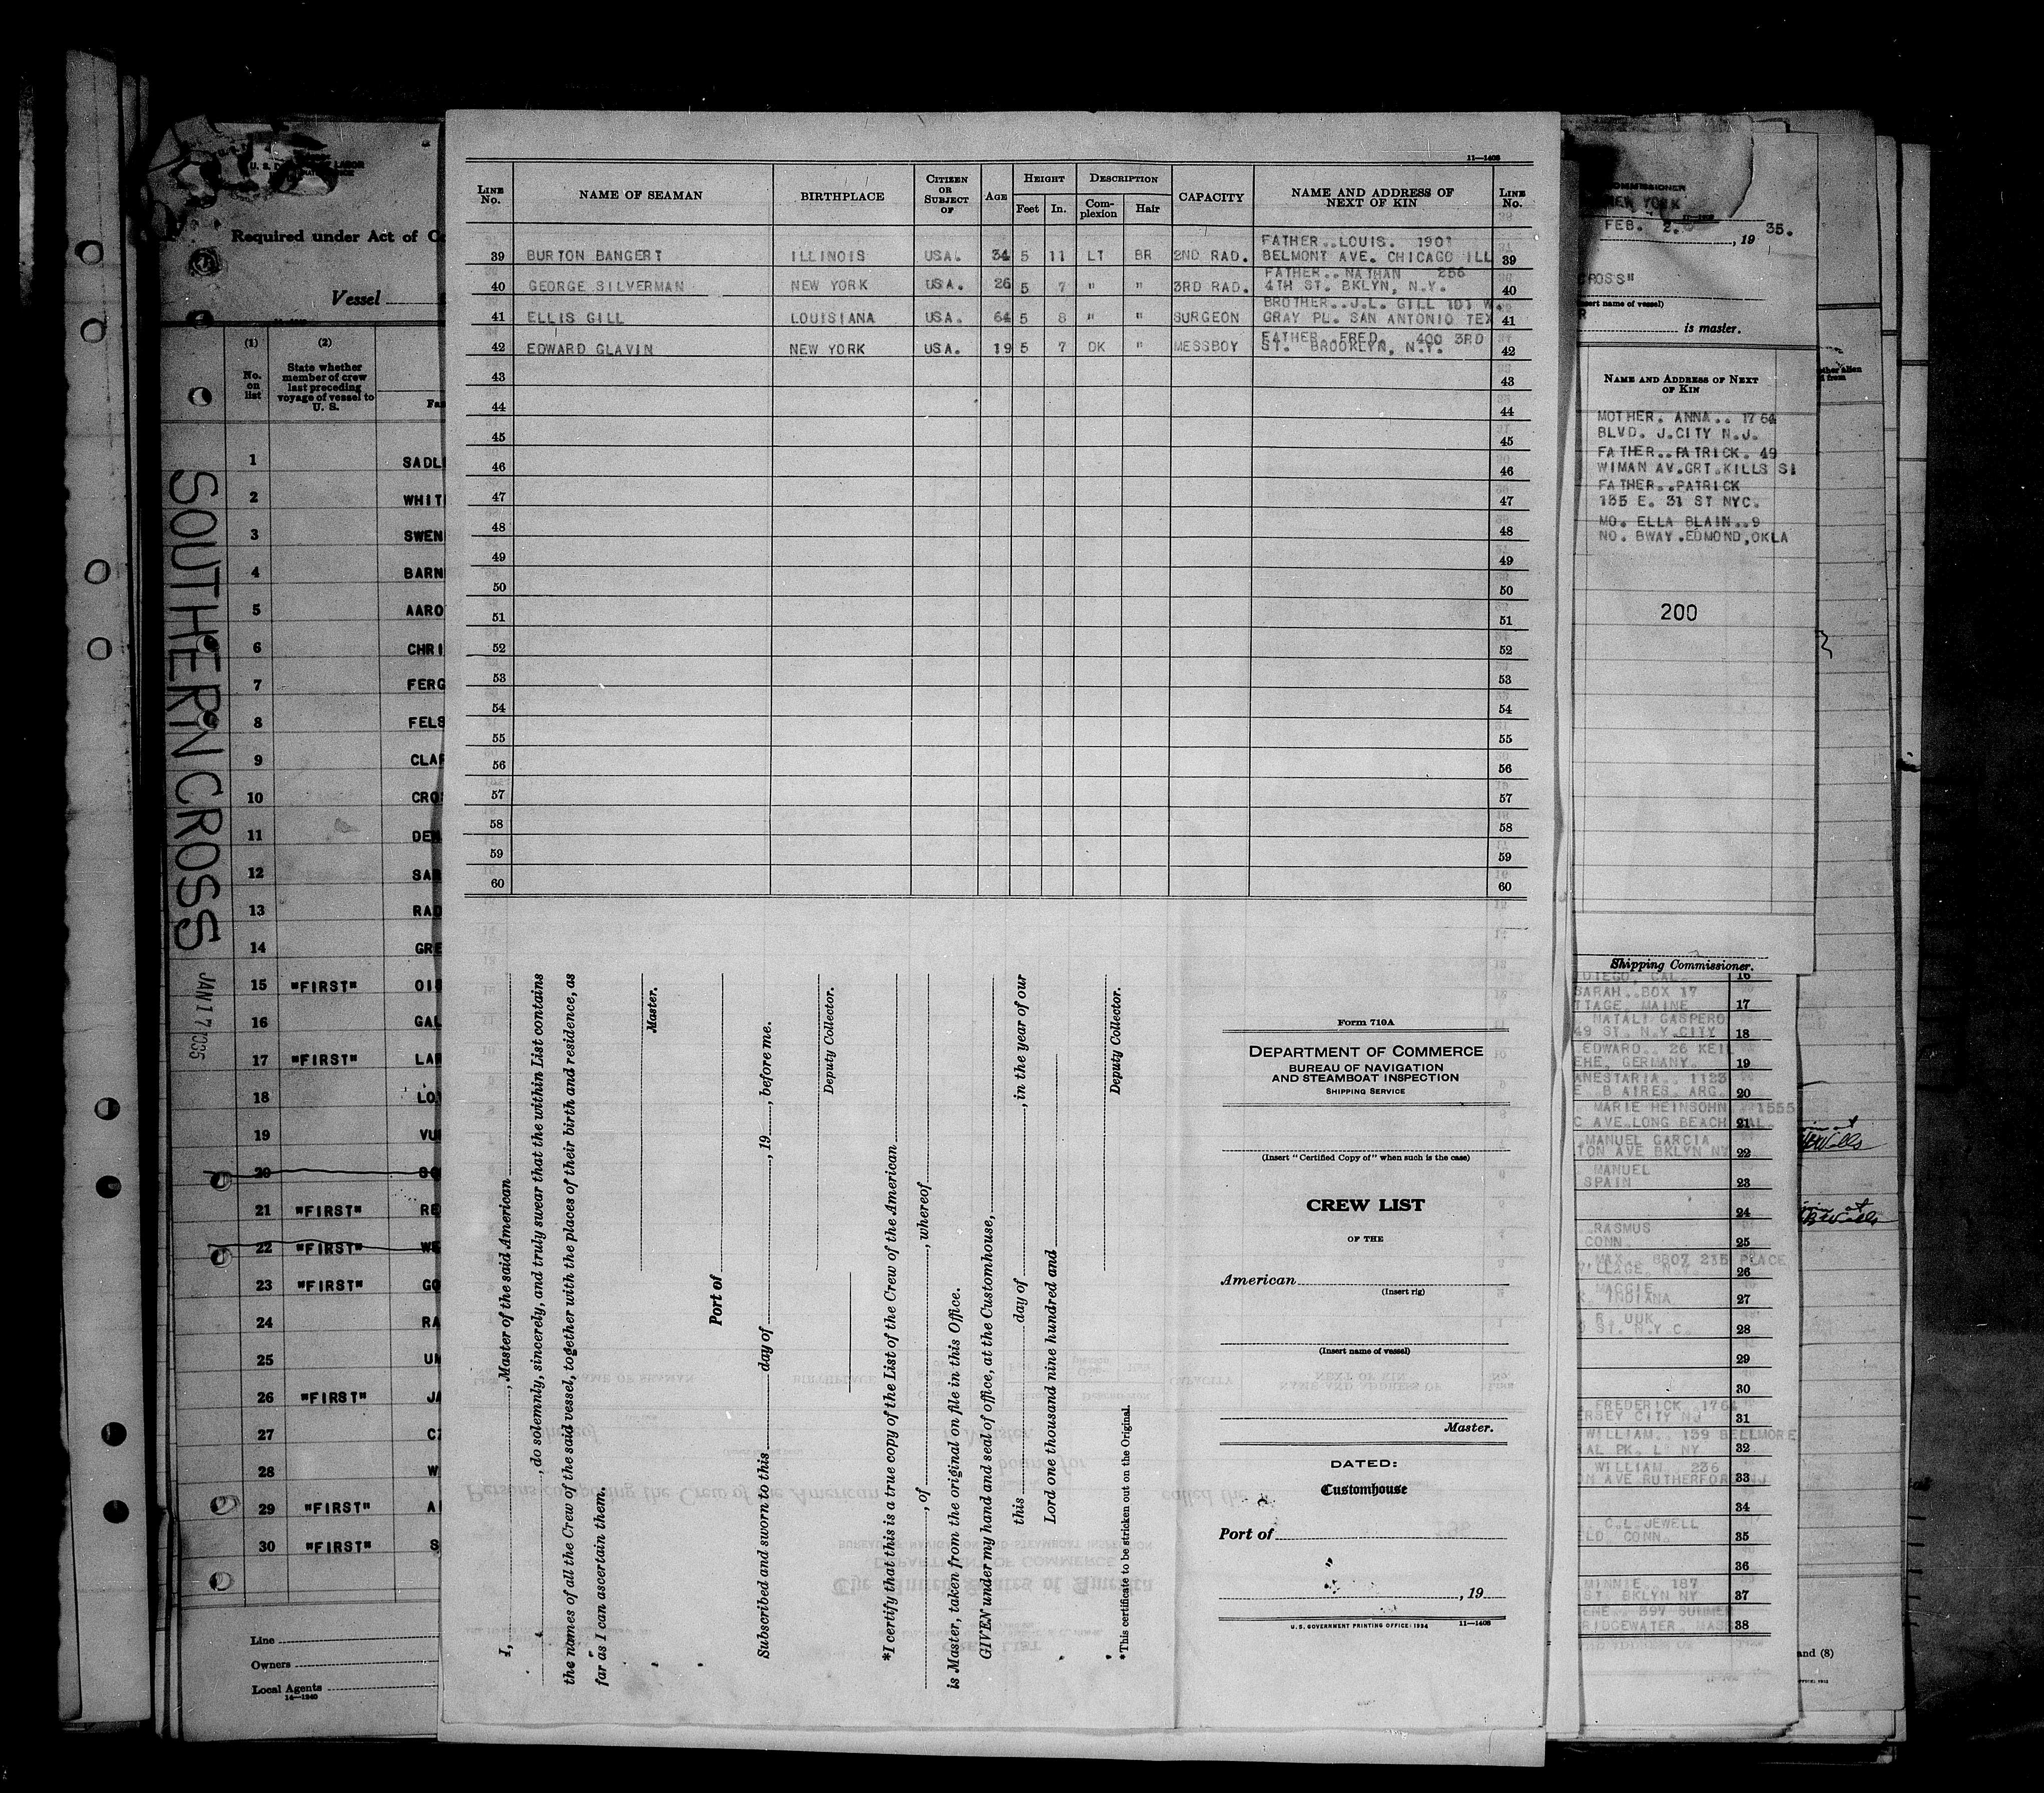 11—1408
LINE No. NAME OF SEAMAN BIRTHPLACE CITIZEN OR SUBJECT OF AGE HEIGHT Feet In. DESCRIPTION Complexion Hair CAPACITY NAME AND ADDRESS OF NEXT OF KIN LINE No.
39 BURTON BANGERT ILLINOIS USA. 34 5 11 LT BR 2ND RAD. FATHER..LOUIS. 1901 BELMONT AVE. CHICAGO ILL 39
40 GEORGE SILVERMAN NEW YORK USA. 26 5 7 " " 3RD RAD. FATHER..NATHAN 256 4TH ST. BKLYN, N.Y. 40
41 ELLIS GILL LOUISIANA USA. 64 5 8 " " SURGEON BROTHER..J.L. GILL 151 W. GRAY PL. SAN ANTONIO TEX 41
42 EDWARD GLAVIN NEW YORK USA. 19 5 7 DK " MESSBOY FATHER..FRED. 400 3RD ST. BROOKLYN, N.Y. 42
43 43
44 44
45 45
46 46
47 47
48 48
49 49
50 50
51 51
52 52
53 53
54 54
55 55
56 56
57 57
58 58
59 59
60 60
I, , Master of the said American
, do solemnly, sincerely, and truly swear that the within List contains
the names of all the Crew of the said vessel, together with the places of their birth and residence, as
far as I can ascertain them.
Master.
Port of
Subscribed and sworn to this day of , 19 , before me.
Deputy Collector.
*I certify that this is a true copy of the List of the Crew of the American
, of , whereof
is Master, taken from the original on file in this Office.
GIVEN under my hand and seal of office, at the Customhouse,
this day of , in the year of our
Lord one thousand nine hundred and
Deputy Collector.
*This certificate to be stricken out on the Original.
Form 710A
DEPARTMENT OF COMMERCE
BUREAU OF NAVIGATION
AND STEAMBOAT INSPECTION
SHIPPING SERVICE
(Insert "Certified Copy of" when such is the case)
CREW LIST
OF THE
American
(Insert rig)
(Insert name of vessel)
Master.
DATED:
Customhouse
Port of
, 19
U.S. GOVERNMENT PRINTING OFFICE: 1934 11—1408
Required under Act of
Vessel
(1) (2)
No. on list
State whether member of crew last preceding voyage of vessel to U. S.
SOUTHERN CROSS
JAN 17 1935
1 SADL
2 WHIT
3 SWEN
4 BARN
5 AARO
6 CHRI
7 FERG
8 FELS
9 CLAR
10 CRO
11 DE
12 SA
13 RAD
14 GRE
15 "FIRST" OI
16 GAL
17 "FIRST" LA
18 LO
19 VU
20
21 "FIRST" RE
22 "FIRST" WE
23 "FIRST" GO
24 RA
25 UM
26 "FIRST" JA
27
28 W
29 "FIRST" A
30 "FIRST" S
Line
Owners
Local Agents
14—1240
COMMISSIONER
NEW YORK
FEB. 2. , 19 35.
CROSS"
(Insert name of vessel)
is master.
NAME AND ADDRESS OF NEXT OF KIN
MOTHER. ANNA.. 1764
BLVD. J.CITY N.J.
FATHER..PATRICK. 49
WIMAN AV.GRT.KILLS SI
FATHER..PATRICK
135 E. 31 ST NYC.
MO. ELLA BLAIN..9
NO. BWAY.EDMOND,OKLA
200
Shipping Commissioner.
DIEGO, CAL 16
SARAH..BOX 17
TTAGE MAINE 17
NATALI GASPERO
49 ST. N.Y.CITY 18
EDWARD.. 26 KEIL
EHE, GERMANY. 19
ANESTARIA.. 1123
B AIRES. ARG. 20
MARIE HEINSOHN 1555
C AVE LONG BEACH CAL. 21
MANUEL GARCIA
TON AVE BKLYN NY 22
MANUEL
SPAIN 23
24
RASMUS
CONN. 25
MAX.. 8807 215 PLACE
26
MAGGIE
INDIANA 27
ST. N.Y.C. 28
29
30
FREDERICK 176
ERSEY CITY NJ 31
WILLIAM.. 139 BELLMORE
AL PK. L NY 32
WILLIAM 236
N AVE RUTHERFORD NJ 33
34
C.L. JEWELL
ELD CONN. 35
36
MINNIE 187
ST. BKLYN NY 37
397 SUMMER
RIDGEWATER MASS 38
and (8)